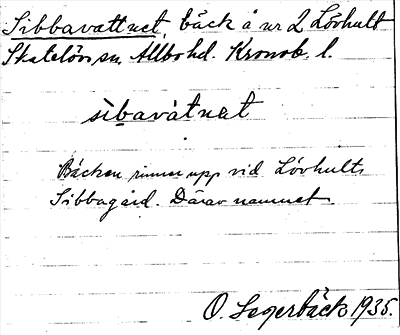 Sibbavattnet, bäck å nr 2 Lövhult
Skatelövs sn. Allbo hd. Kronob. l.
sìbavátnət
Bäcken rinner upp vid Lövhults
Sibbagård. Därav namnet.
O. Segerbäck 1935.